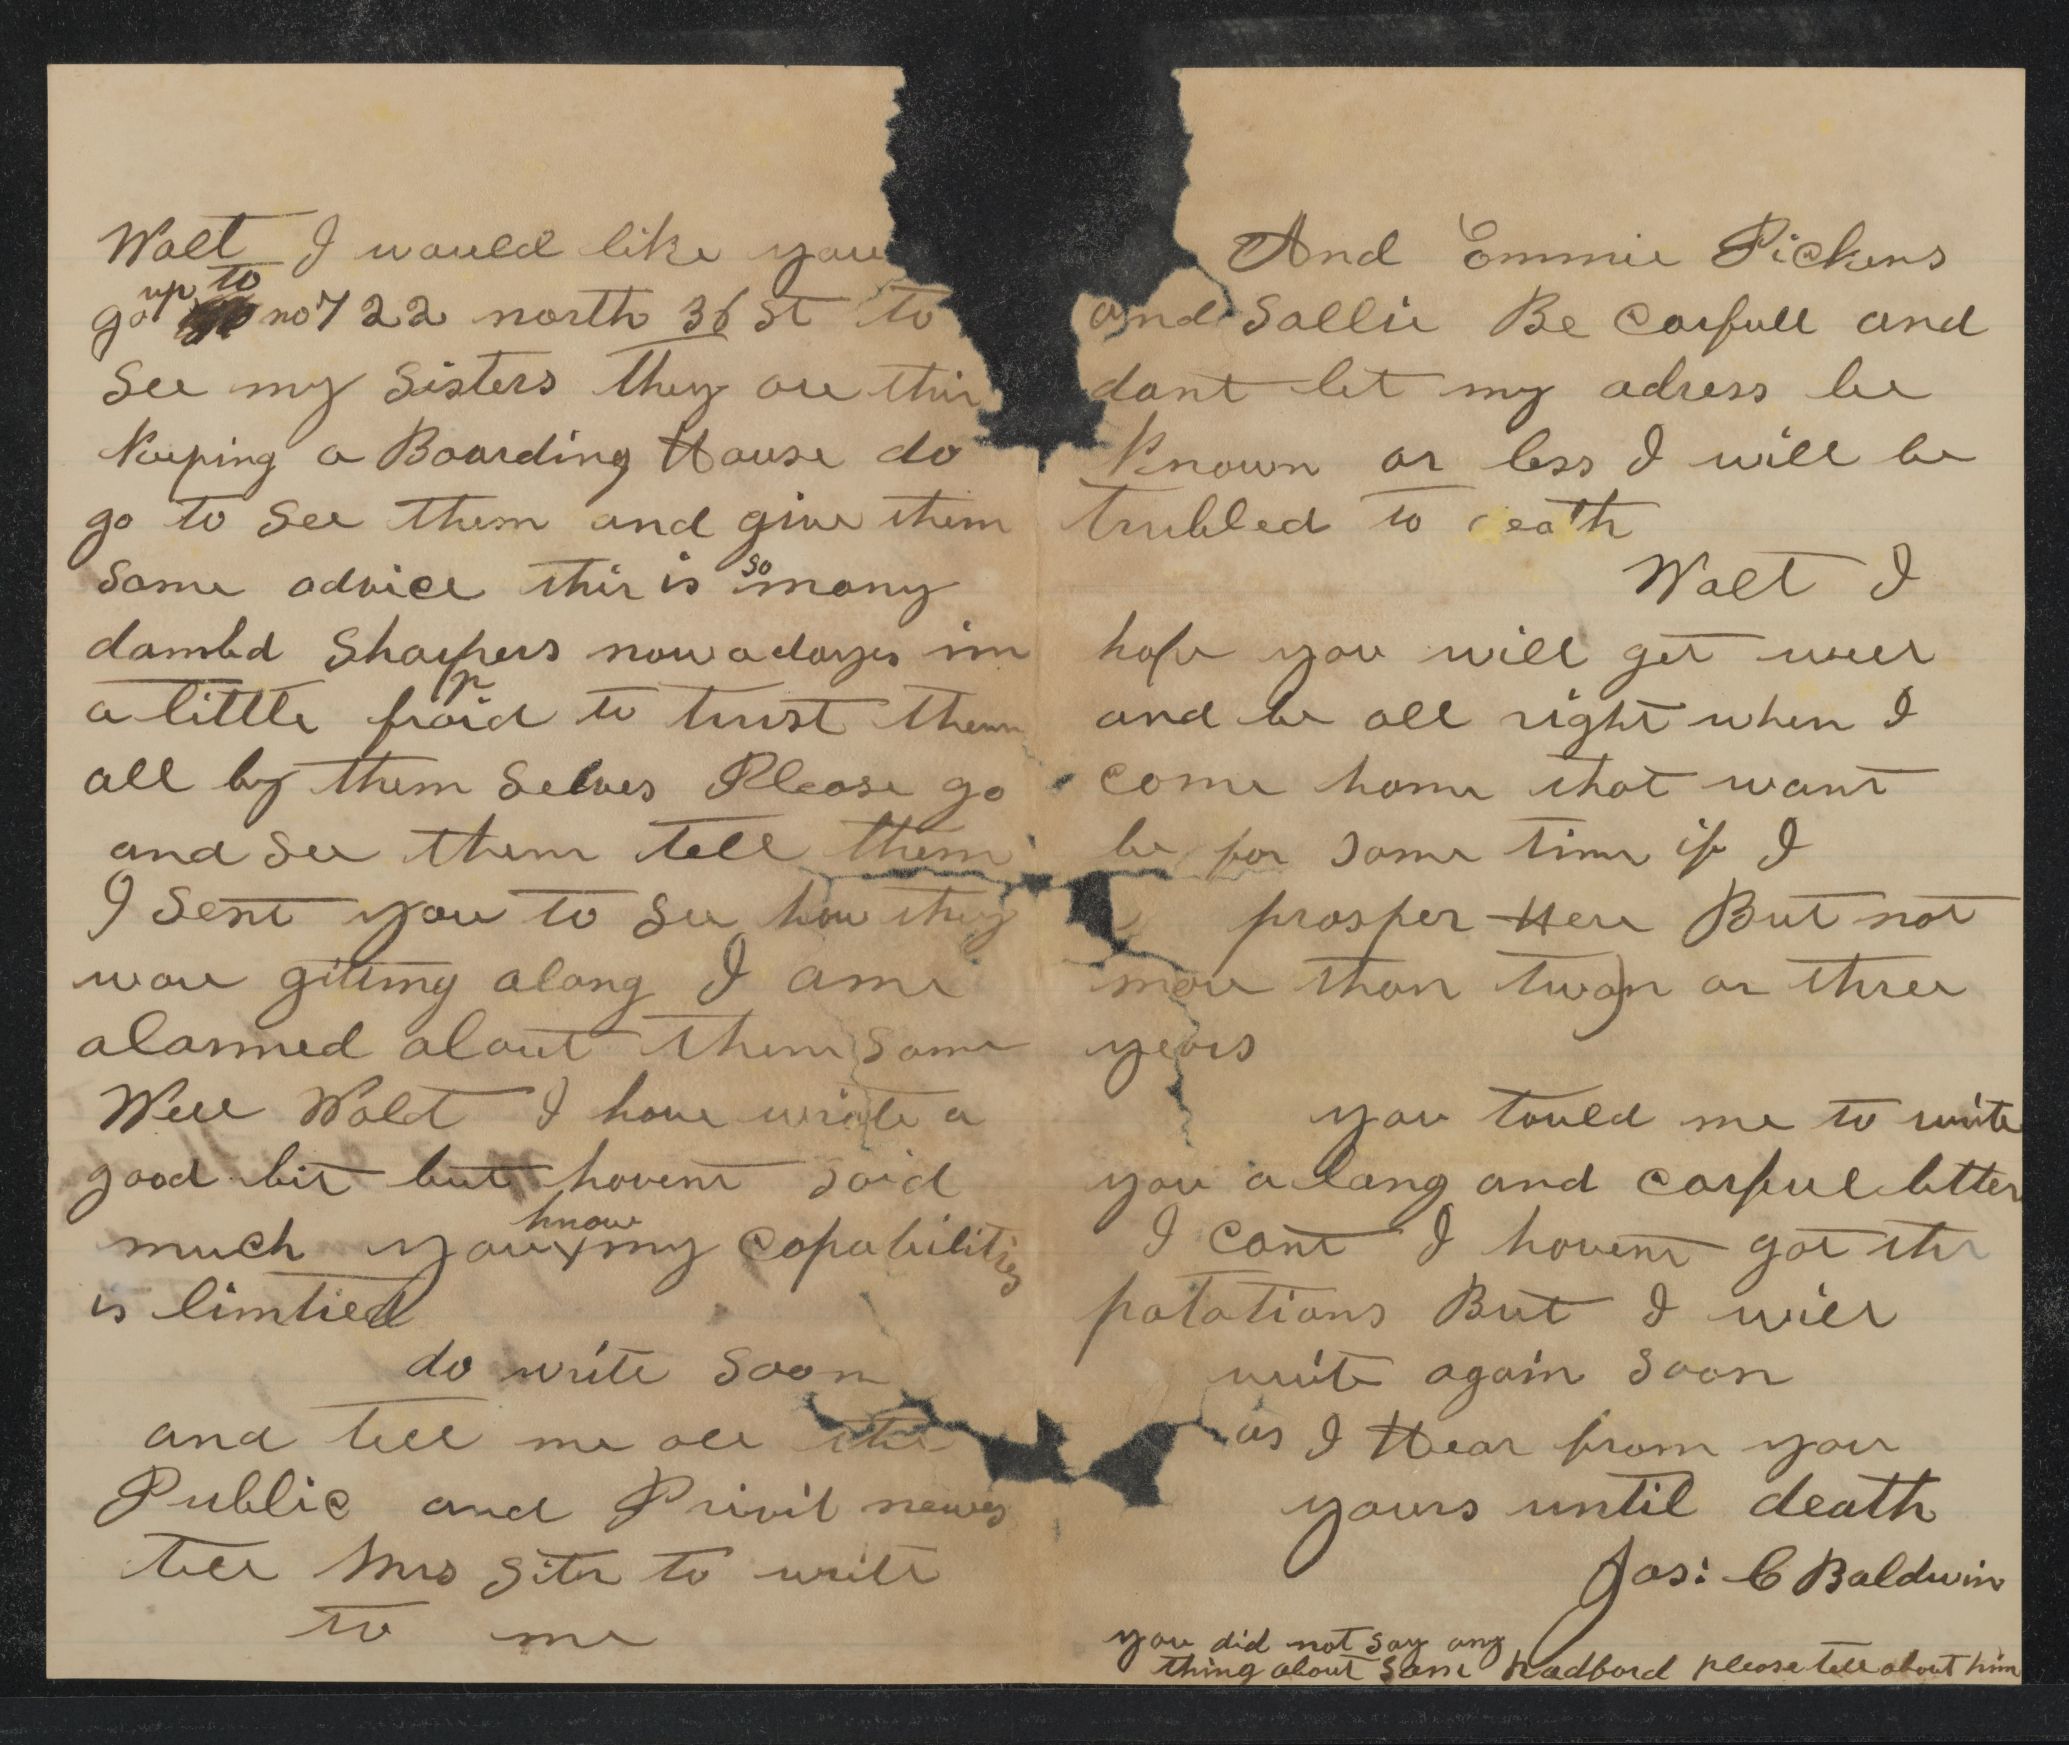 Walt I would like you
up to
go no 722 north 36 St to
See my Sisters they are thir
Keeping a Boarding House do
go to See them and give them
Some advice thir is so many
dambd Sharpers nowadayes im
a little fraid to trust them
all by them Selves Please go
and See them tell them
I Sent you to See how they
ware giting along I ame
alarmed about them some
Well Walt I have wrote a
good bit but havent said
much you know my capabilities
is limtied
do write Soon
and tell me all the
Public and Privit newes
tell Mrs Siter to write
to me
And Emmie Pickens
and Sallie Be Carfull and
dant let my adress be
Known or less I will be
trubled to death
Walt I
hope you will get well
and be all right when I
come home that want
be for some time if I
prosper Here But not
more than two or three
years
you tould me to write
you a long and carful letter
I cant I havent got the
patations But I will
write again soon
as I Hear from you
yours until death
Jas: C Baldwin
you did not say any
thing about Sam please tell about him